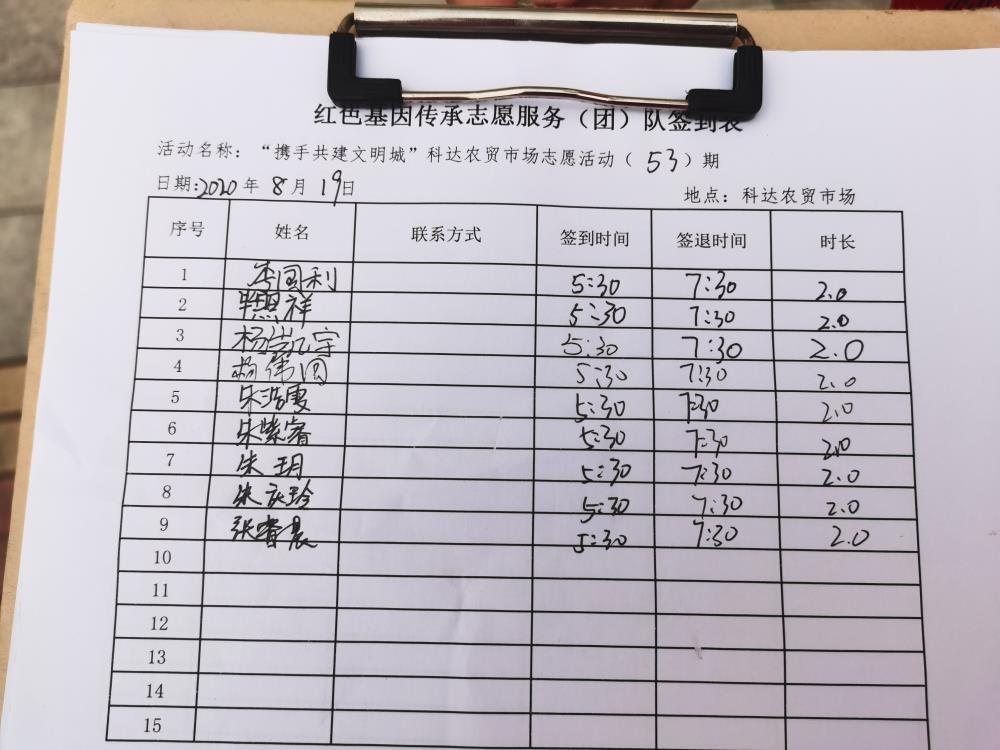 红色基因传承志愿服务（团）队签到表
活动名称：“携手共建文明城”科达农贸市场志愿活动（53）期
日期:2020年8月19日
地点：科达农贸市场
序号 姓名 联系方式 签到时间 签退时间 时长
1 李国利 5:30 7:30 2.0
2 照祥 5:30 7:30 2.0
3 杨宇 5:30 7:30 2.0
4 杨伟圆 5:30 7:30 2.0
5 朱浩雯 5:30 7:30 2.0
6 朱紫睿 5:30 7:30 2.0
7 朱玥 5:30 7:30 2.0
8 朱庆玲 5:30 7:30 2.0
9 张睿晨 5:30 7:30 2.0
10
11
12
13
14
15